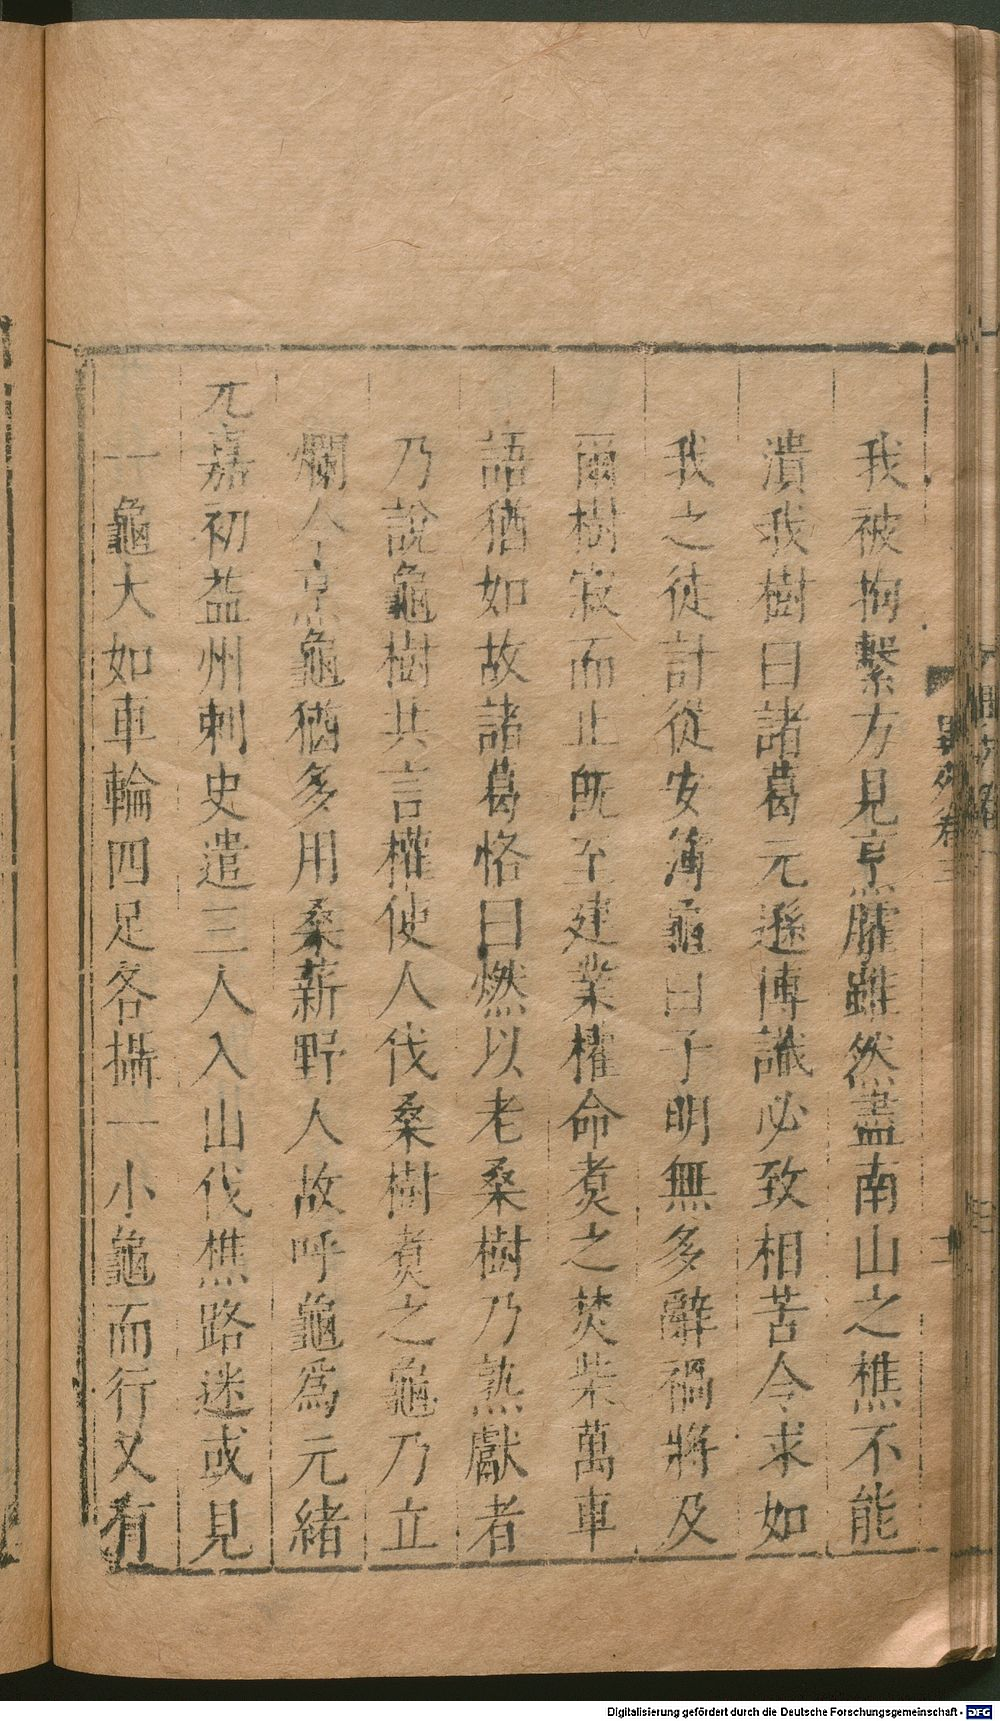 我被拘繫方見亨臛雖然盡南山之樵不能
潰我樹曰諸葛元遜博識必致相苦令求如
我之徒計從安簿龜曰子明無多辭禍將及
爾樹寂而止旣至建業權命煑之焚柴萬車
語猶如故諸葛恪曰燃以老桑樹乃熟獻者
乃說龜樹共言權使人伐桑樹煑之龜乃立
爛今烹龜猶多用桑薪野人故呼龜爲元緒
元嘉初益州刺史遣三人入山伐樵路迷或見
一龜大如車輪四足各攝一小龜而行又有
異苑卷三
Digitalisierung gefördert durch die Deutsche Forschungsgemeinschaft - DFG